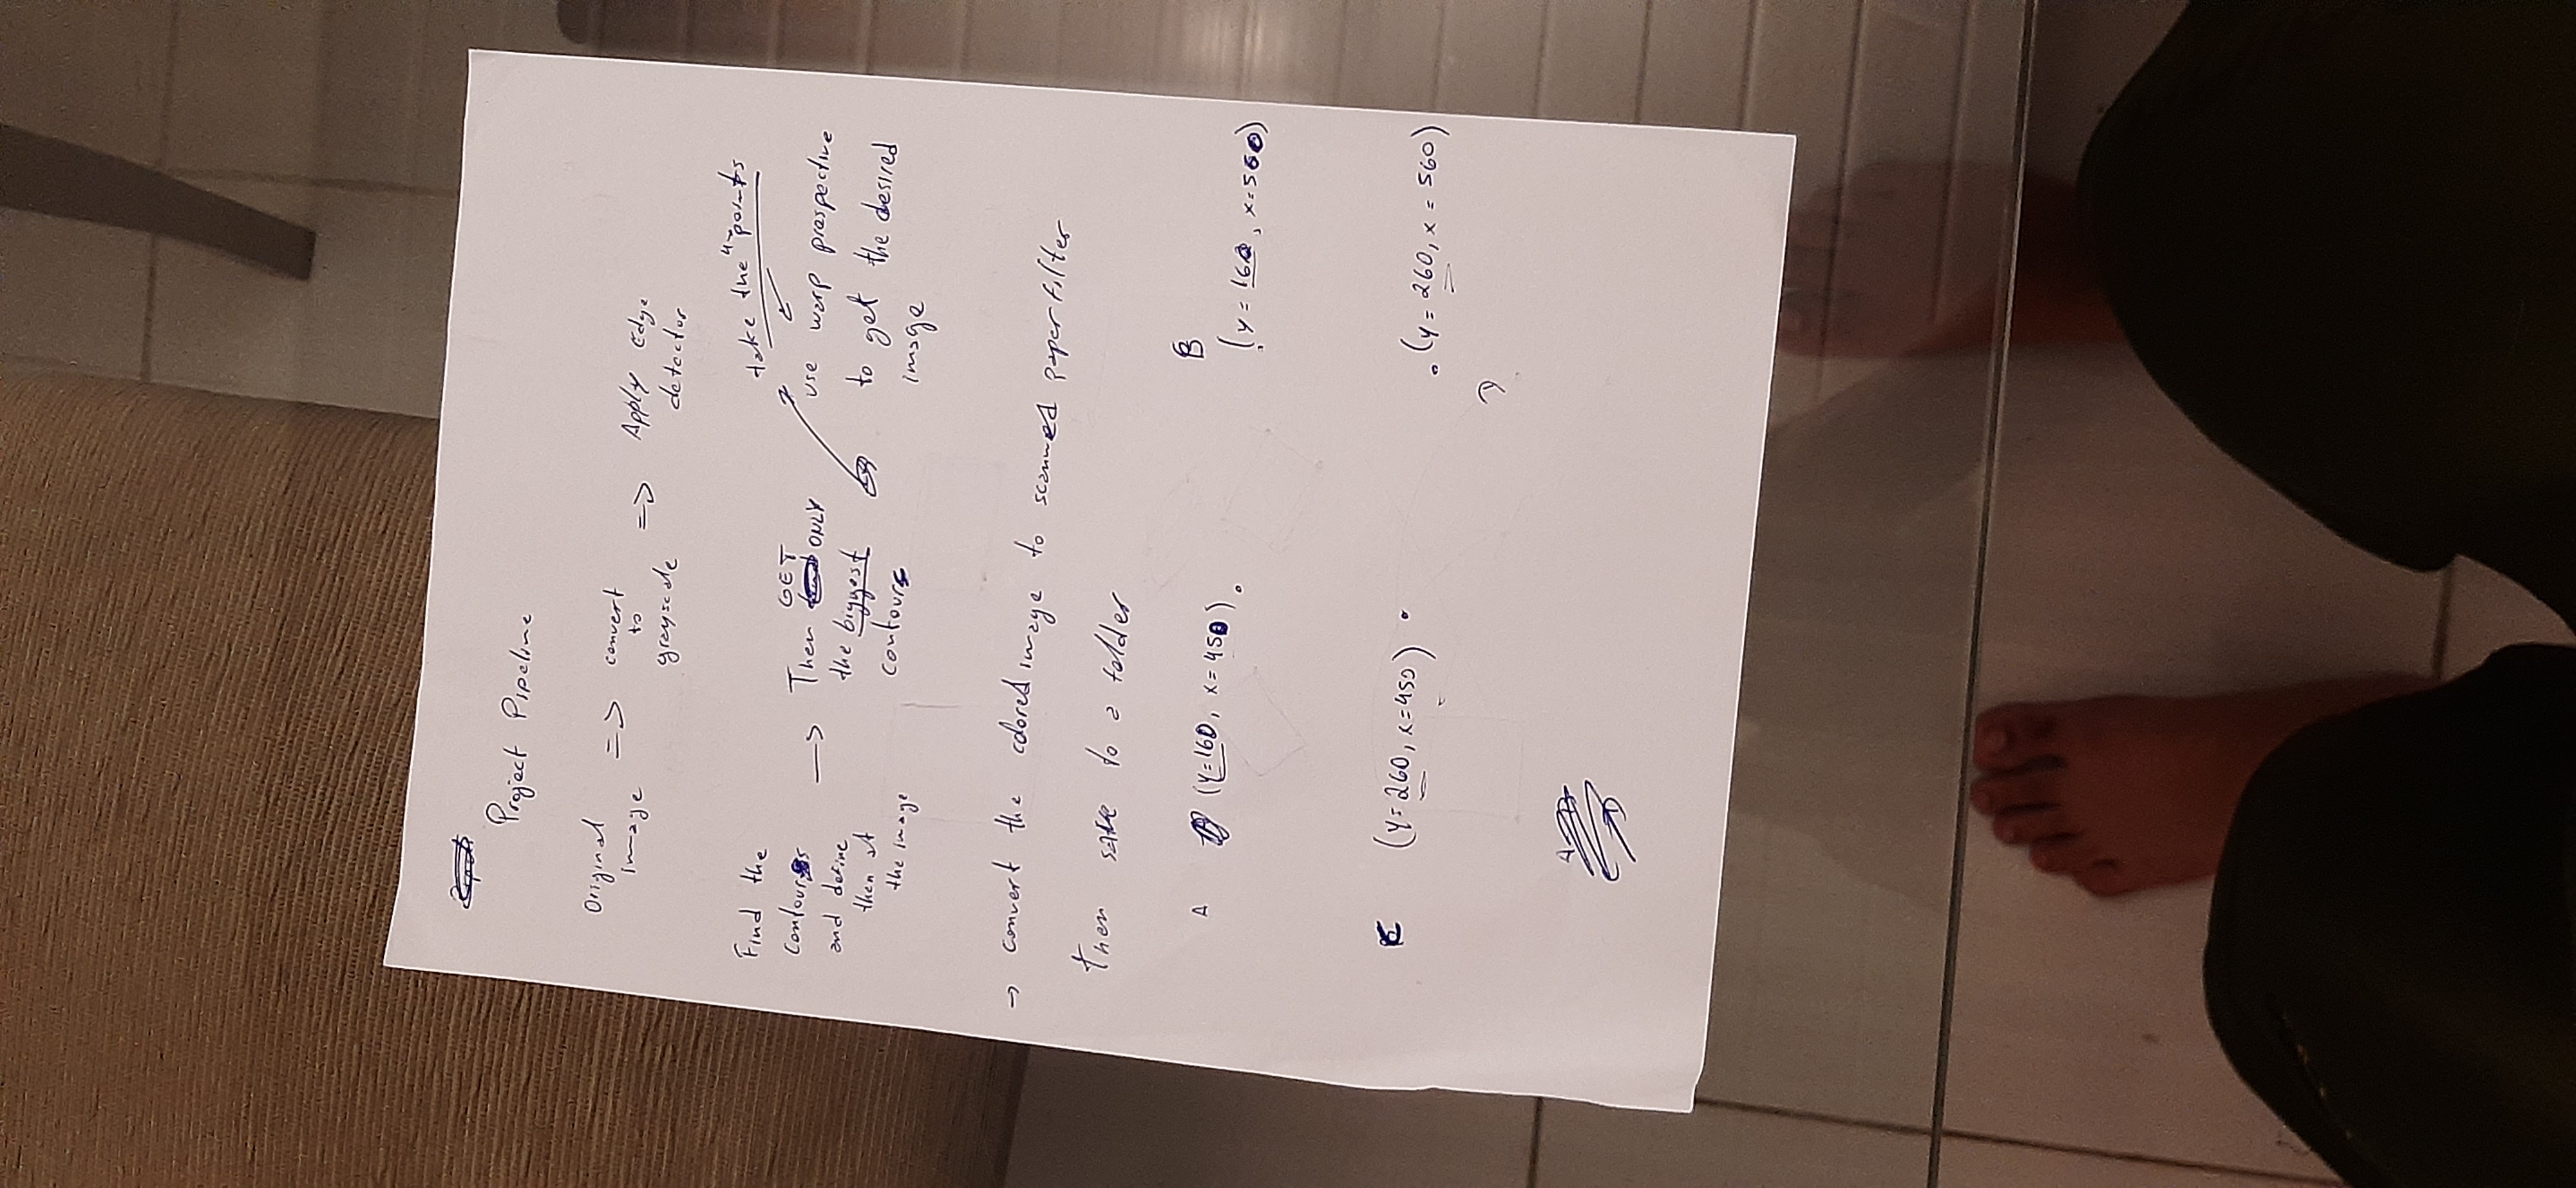 Project Pipeline
Original image => convert to grayscale => Apply Edge detector
Find the
contours
and define
them at
the image
->
Then GET ONLY
the biggest
contours
take the 4 points
use warp prespective
to get the desired
image
-> convert the colored image to scanned paper filter
Then save to a folder
A (y=160, x=450)
B
(y=160, x=560)
C (y=260, x=450)
(y=260, x=560)